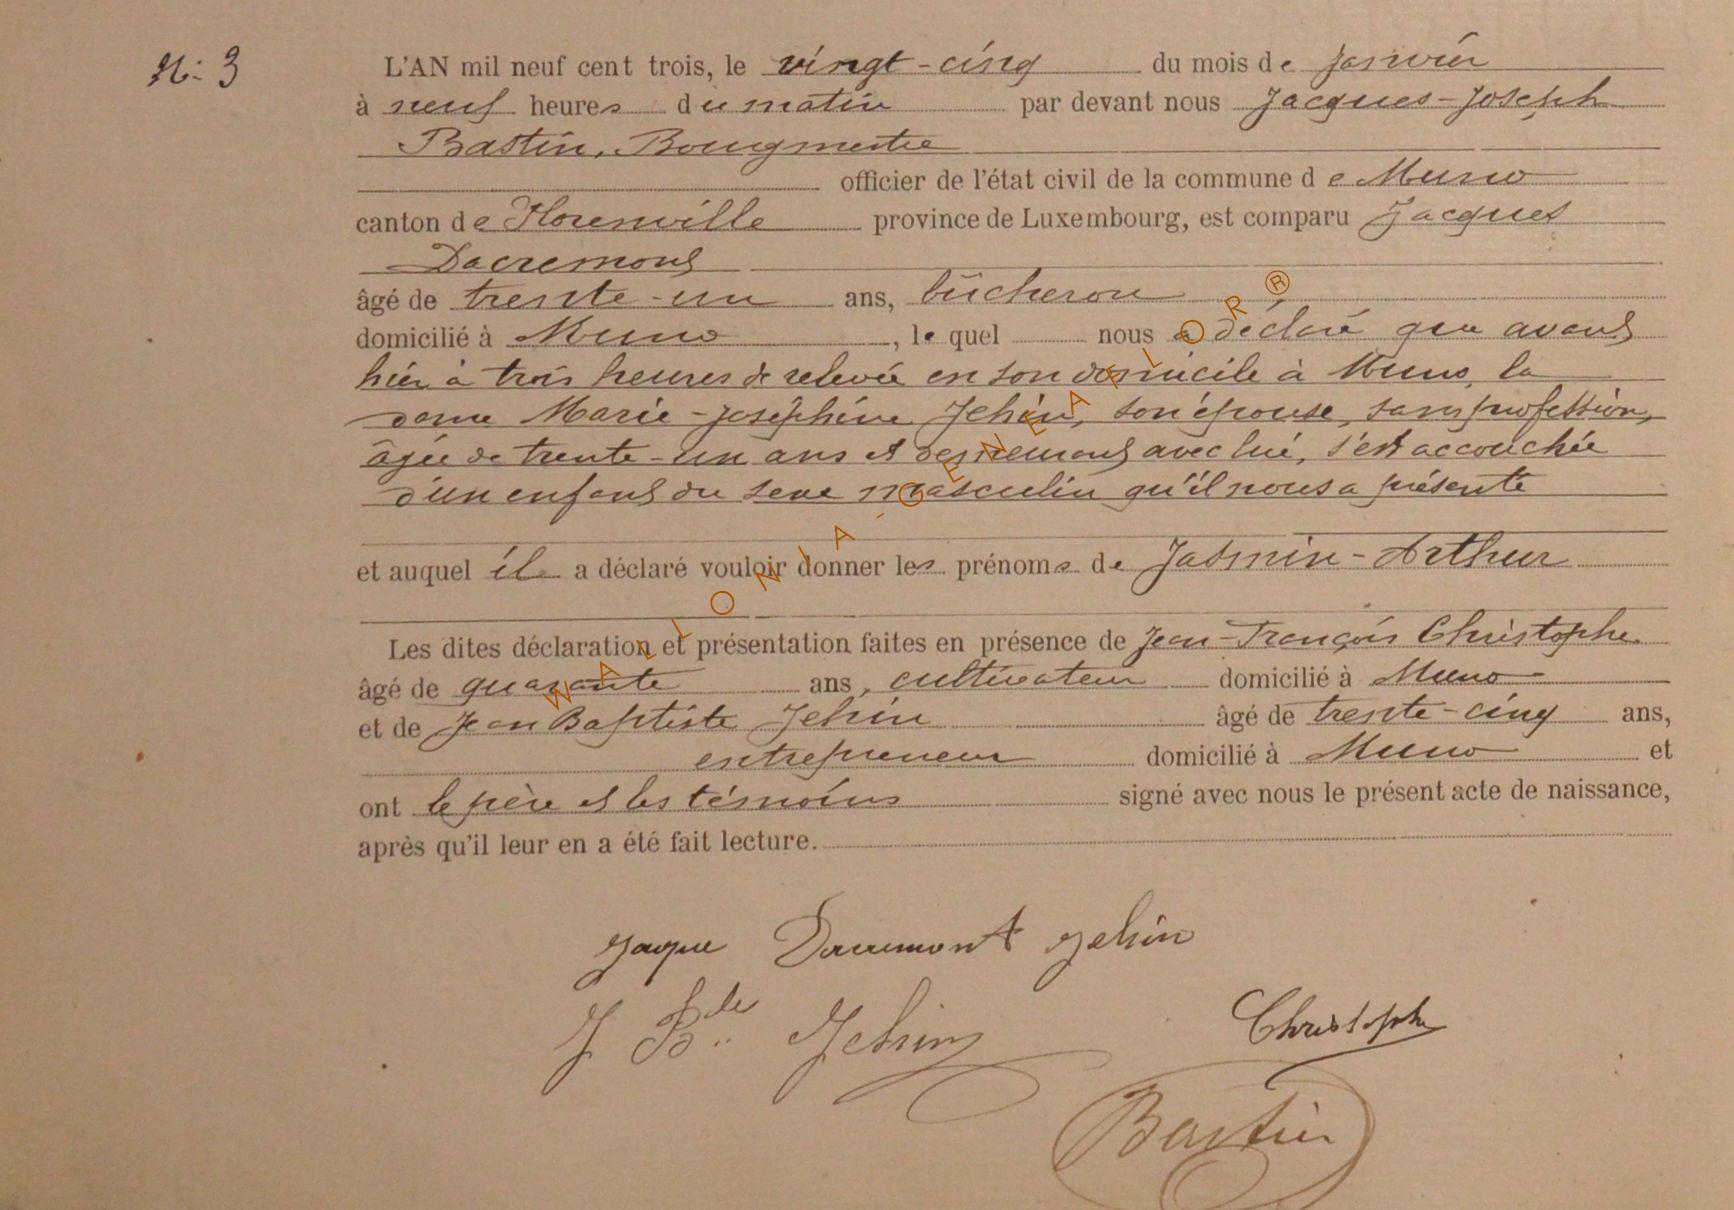 N: 3
L'AN mil neuf cent trois, le vingt-cinq du mois de janvier
à neuf heures du matin par devant nous Jacques-Joseph
Bastin, Bourgmestre
officier de l'état civil de la commune de Muno
canton de Florenville province de Luxembourg, est comparu Jacques
Dacremont
âgé de trente-un ans, bûcheron
domicilié à Muno, lequel nous a déclaré que avant
hier à trois heures de relevée en son domicile à Muno, la
dame Marie-Joséphine Jehin, son épouse, sans profession,
âgée de trente-un ans et demeurant avec lui, s'est accouchée
d'un enfant du sexe masculin qu'il nous a présenté
et auquel il a déclaré vouloir donner les prénoms de Jasmin-Arthur
Les dites déclaration et présentation faites en présence de Jean-François Christophe
âgé de quarante ans, cultivateur domicilié à Muno
et de Jean Baptiste Jehin âgé de trente-cinq ans,
entrepreneur domicilié à Muno et
ont le père et les témoins signé avec nous le présent acte de naissance,
après qu'il leur en a été fait lecture.
Jaque Dacremont Jehin
J Bte Jehin Christophe
Bastin
WALLONIA-GENEALOR®